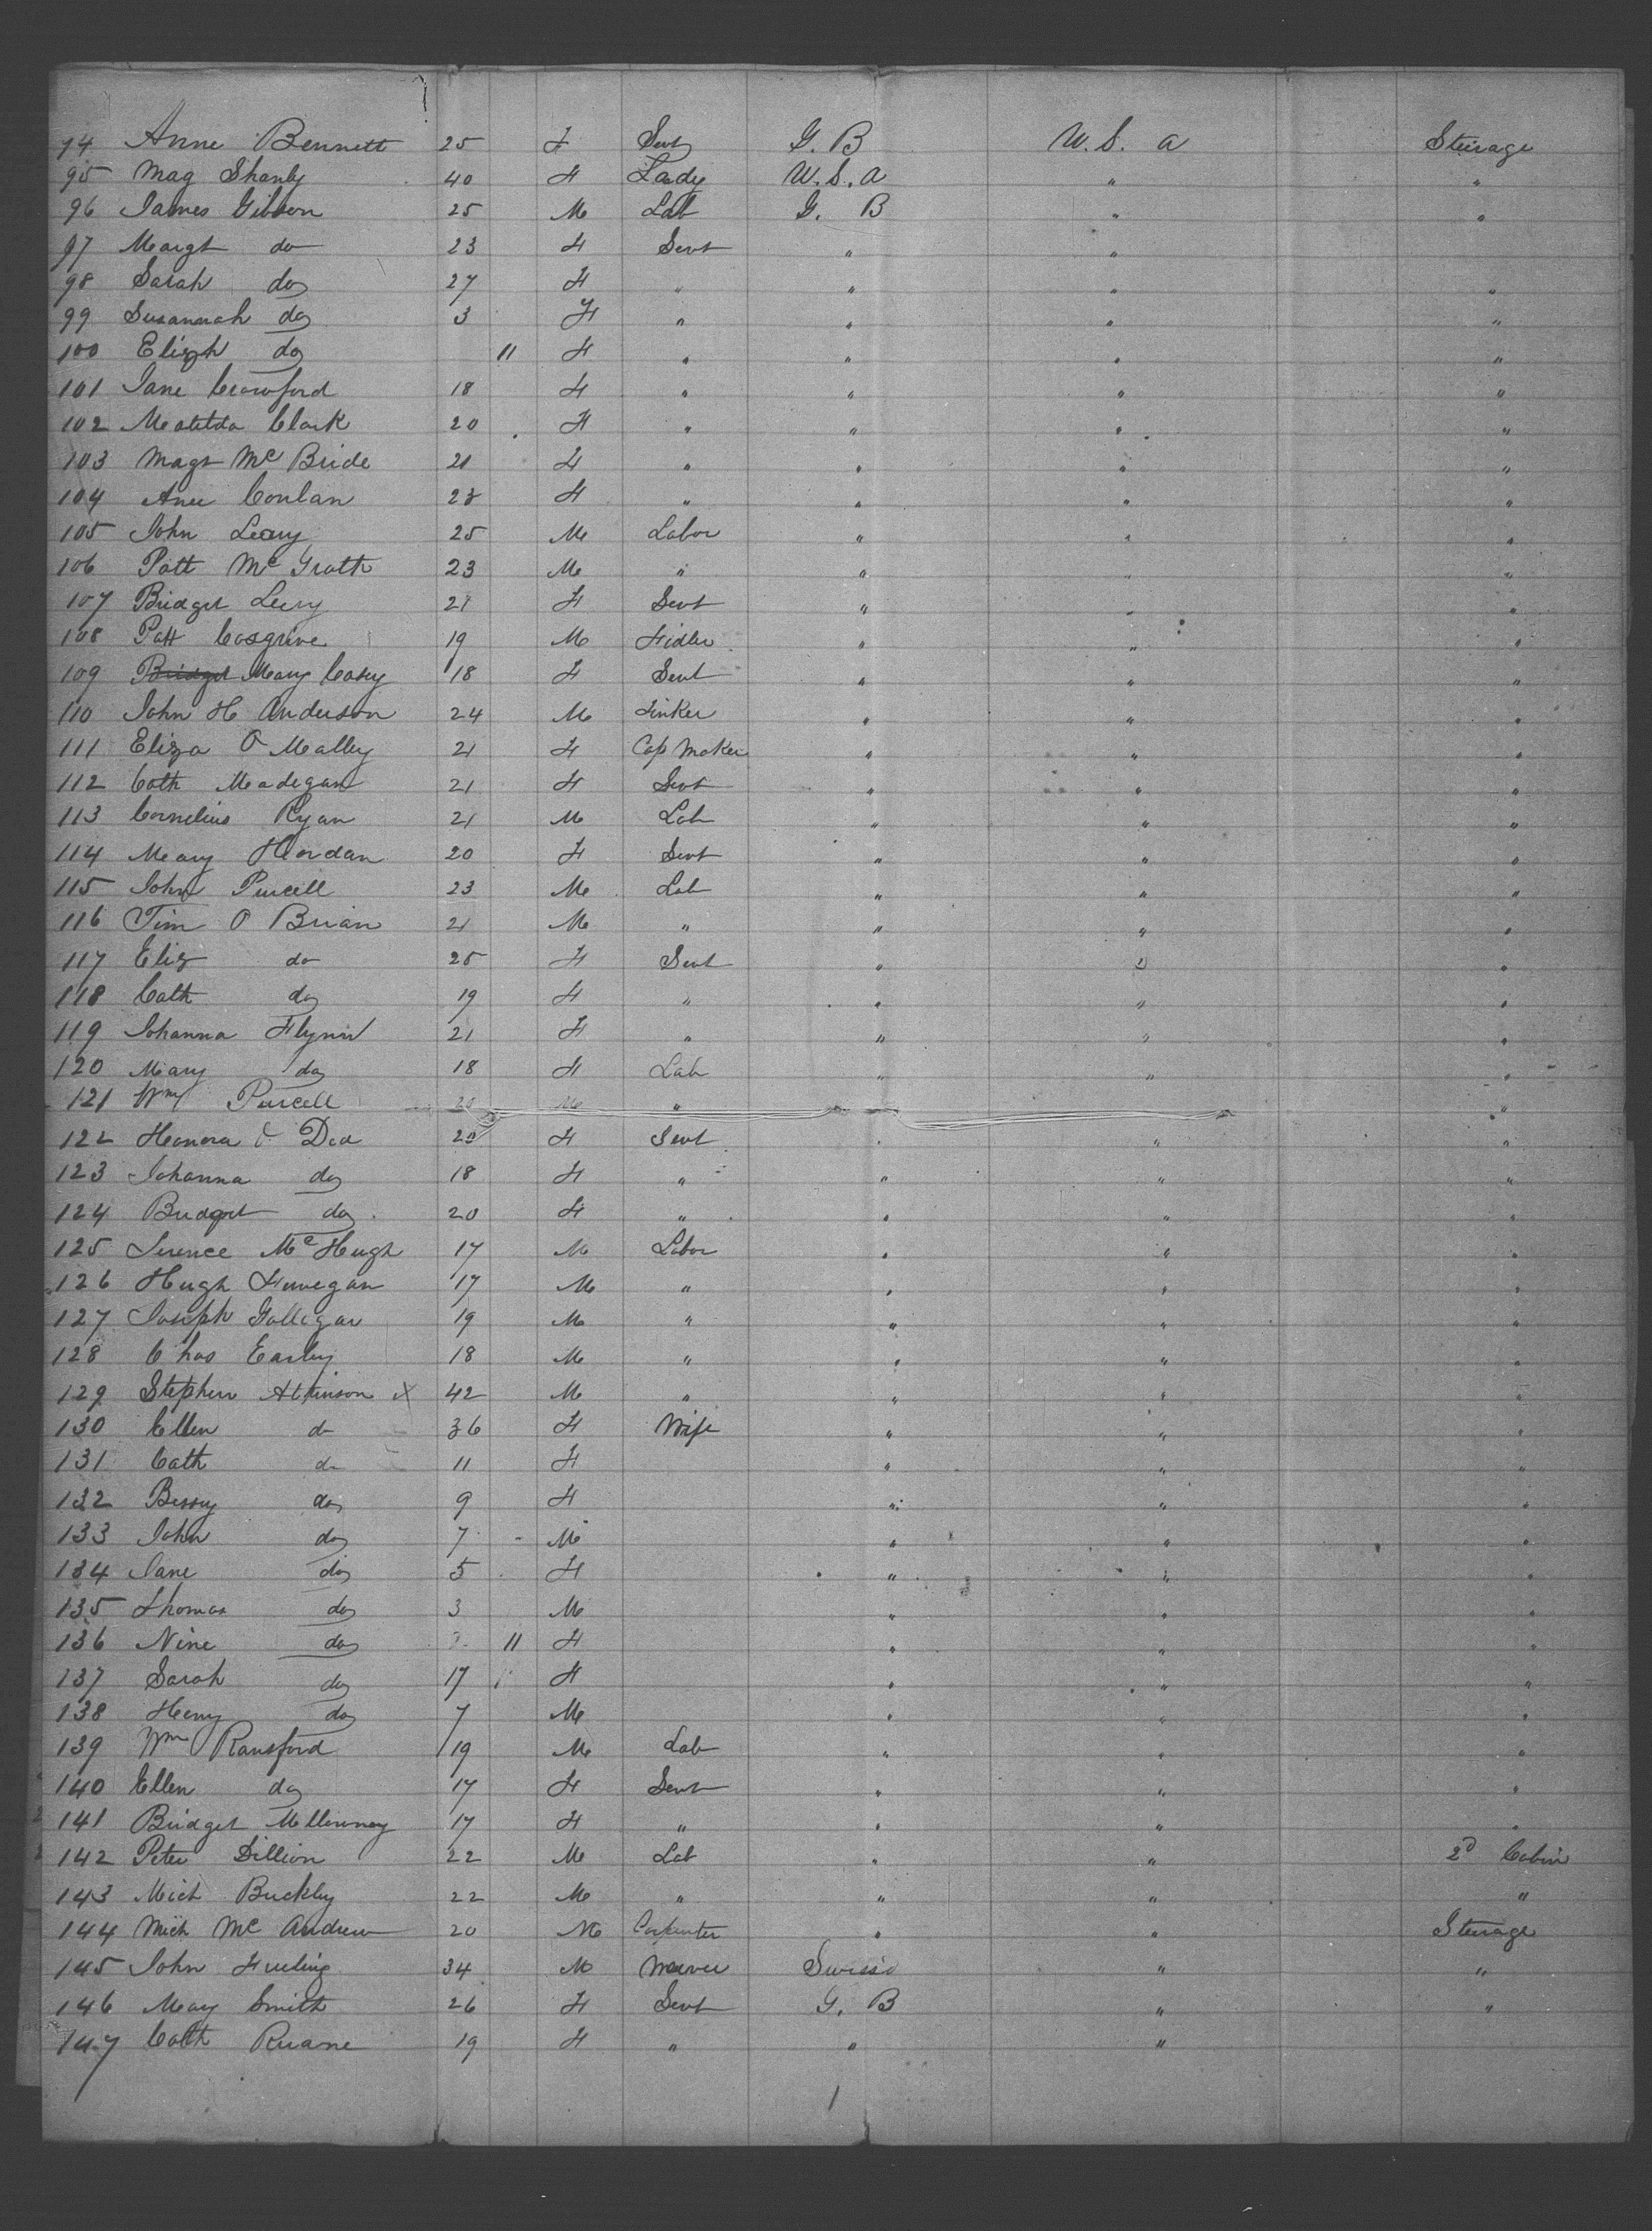 94 Anne Bennett 25 F Sert G. B U. S. A Steirage
95 Mag Shanly 40 F Lady U. S. A " "
96 James Gibson 25 M Lab G. B " "
97 Margt do 23 F Servt " "
98 Sarah do 27 F " " " "
99 Susannah do 3 F " " " "
100 Elizh do 11 F " " " "
101 Jane Crawford 18 F " " " "
102 Matilda Clark 20 F " " " "
103 Magt Mc Bride 21 F " " " "
104 Ann Conlan 23 F " " " "
105 John Leary 25 M Labor " " "
106 Patt Mc Grath 23 M " " " "
107 Bridget Leery 21 F Servt " " "
108 Patt Cosgrive 19 M Fidler " " "
109 Bridget Mary Casey 18 F Servt " " "
110 John H Anderson 24 M Tinker " " "
111 Eliza O Malley 21 F Cap Maker " " "
112 Cath Madegan 21 F Servt " " "
113 Cornelius Ryan 21 M Lab " " "
114 Mary Hordan 20 F Servt " " "
115 John Purcell 23 M Lab " " "
116 Tim O Brian 21 M " " " "
117 Eliz do 25 F Servt " " "
118 Cath do 19 F " " " "
119 Johanna Flynn 21 F " " " "
120 Mary do 18 F Lab " " "
121 Wm Purcell 20 M " "
122 Honora O Dea 20 F Servt " " "
123 Johanna do 18 F " " " "
124 Bridget do 20 F " " " "
125 Terence Mc Hugh 17 M Labor " " "
126 Hugh Finnegan 17 M " " " "
127 Joseph Galligan 19 M " " " "
128 Chas Earley 18 M " " " "
129 Stephen Atkinson x 42 M " " " "
130 Ellen do 36 F Wife " " "
131 Cath do 11 F " " "
132 Bessy do 9 F " " "
133 John do 7 M " " "
134 Jane do 5 F " " "
135 Thomas do 3 M " " "
136 Nine do 11 F " " "
137 Sarah do 17 F " " "
138 Henry do 7 M " " "
139 Wm Ransford 19 M Lab " " "
140 Ellen do 17 F Servt " " "
141 Bridget 17 F " " " "
142 Peter Dillion 22 M Lab " " 2d Cabin
143 Mich Buckley 22 M " " " "
144 Mich Mc Andrew 20 M Carpenter " " Steirage
145 John 34 M Weaver Swiss " "
146 Mary Smith 26 F Servt G. B " "
147 Cath Ruane 19 F " " "
1